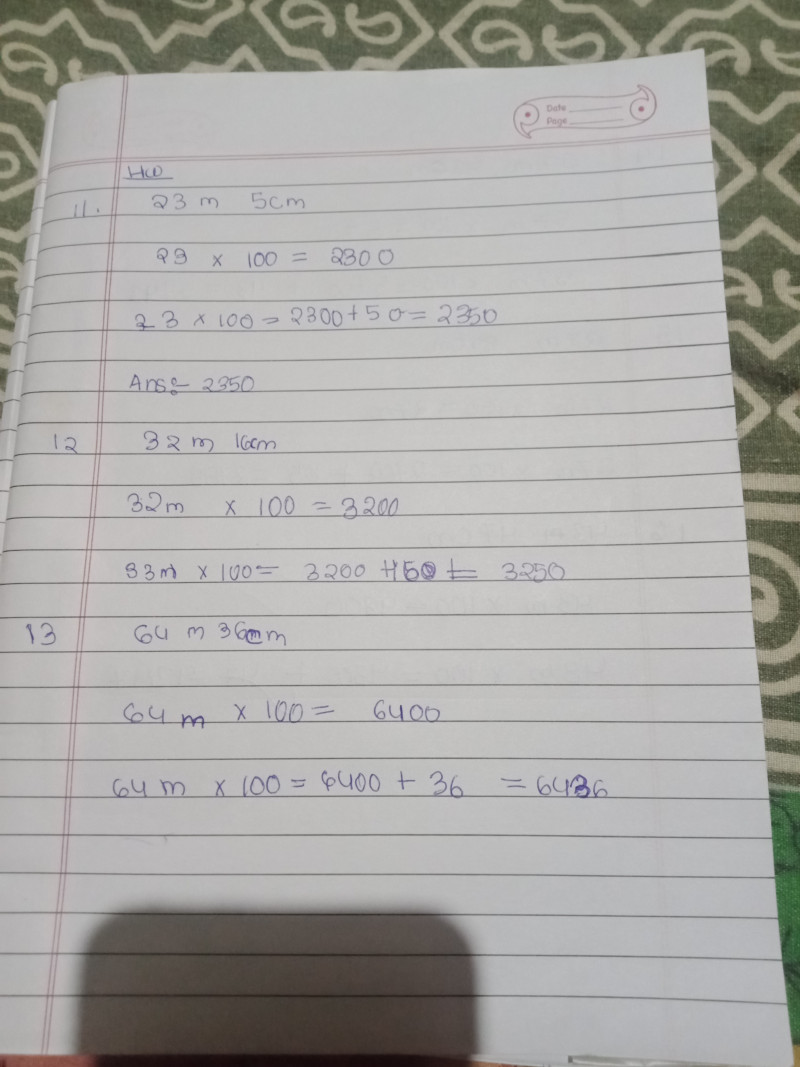 Date
Page
HW
11. 23 m 5cm
23 x 100 = 2300
23 x 100 = 2300+50= 2350
Ans:- 2350
12 32 m 16cm
32m x 100 = 3200
33m x 100= 3200 + 50 = 3250
13 64 m 36cm
64 m x 100 = 6400
64 m x 100 = 6400 + 36 = 6436